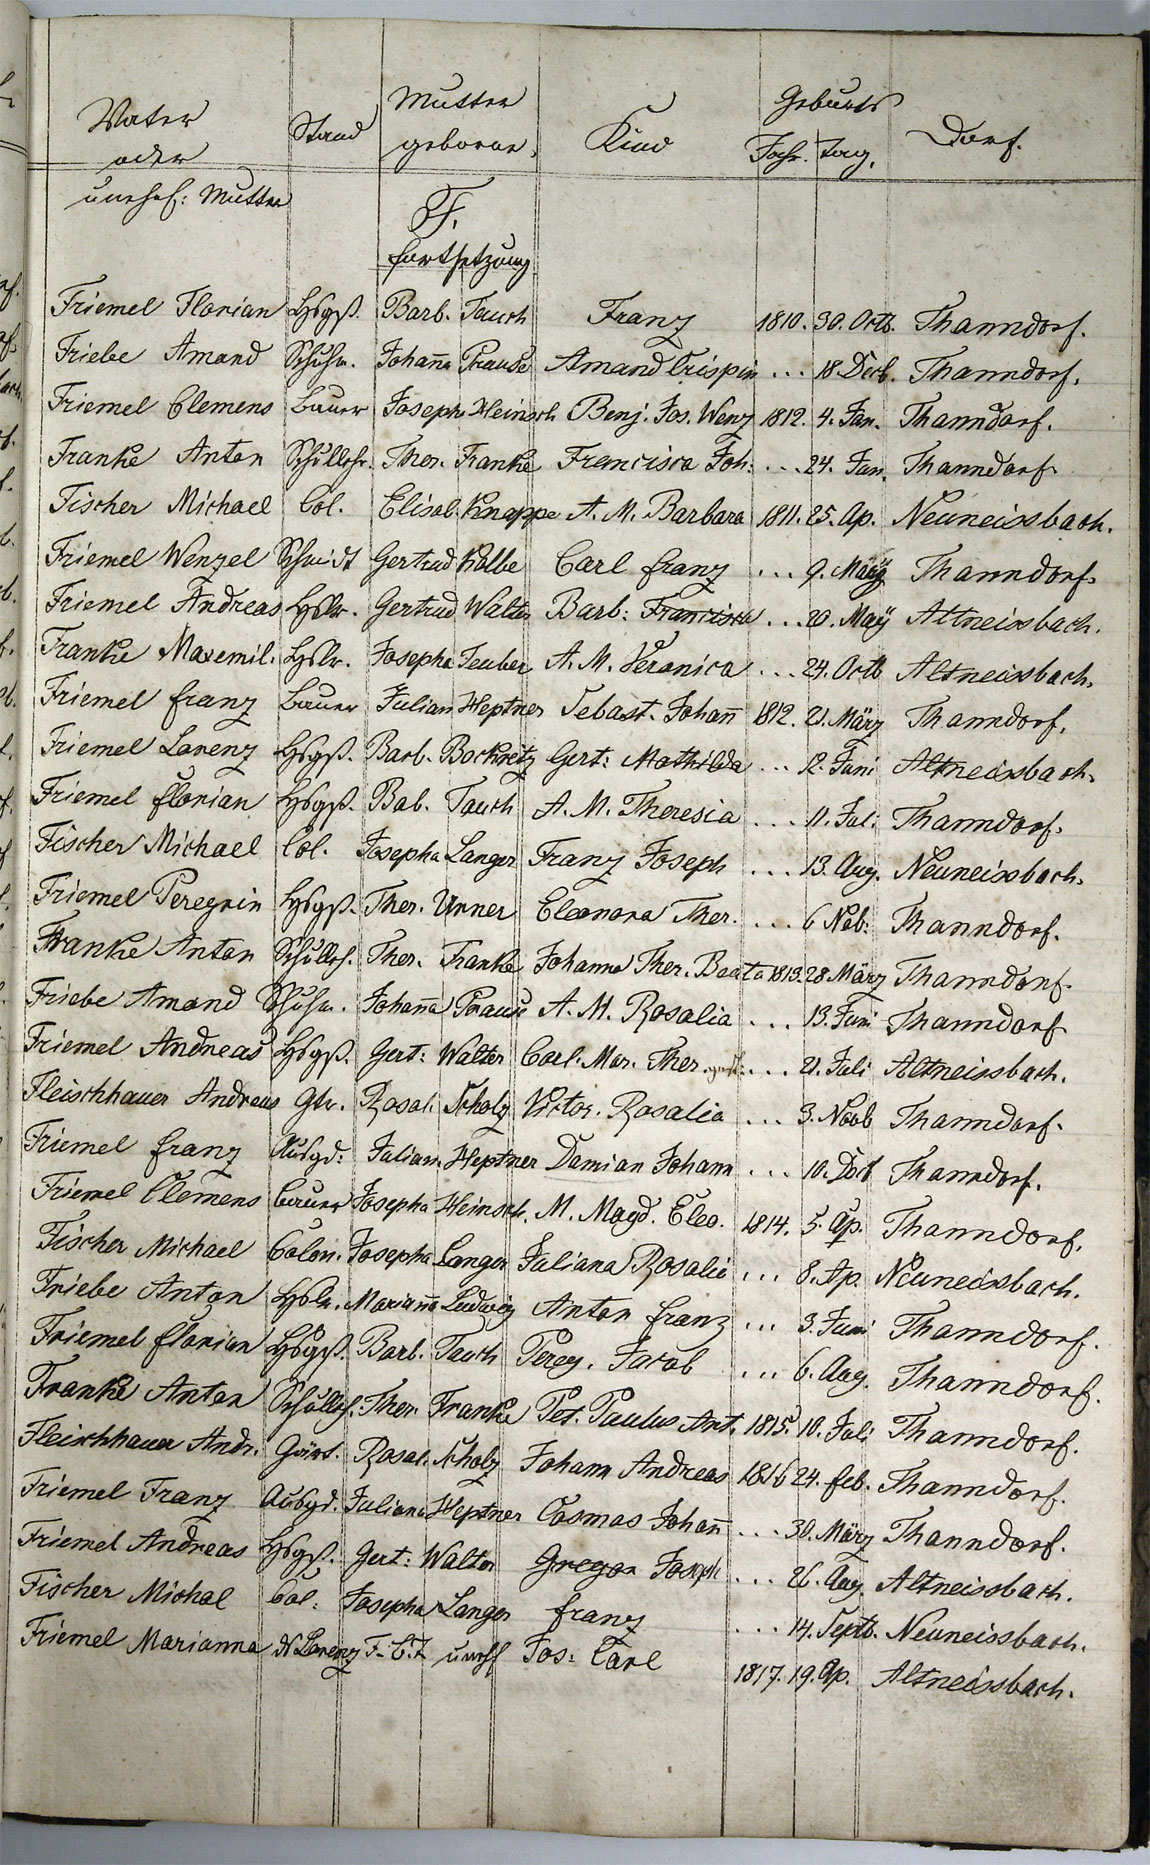 Vater Stand Mutter Kind Geburts Dorf.
oder geborne. Jahr. Tag.
unehel: Mutter
F.
Fortsetzung
Friemel Florian Hsgß. Barb. Tauch Franz 1810. 30. Octb. Thanndorf.
Friebe Amand Schuhm. Johan̄a Prause Amand Crispin ... 18 Decb. Thanndorf.
Friemel Clemens Bauer Josepha Heinsch Benj. Jos. Wenz 1812. 4. Jan. Thanndorf.
Franke Anton Schullehr. Ther. Franke Francisca Joh: ... 24. Jan. Thanndorf.
Fischer Michael Col. Elisab. Knappe A. M. Barbara 1811. 25. Ap. Neuneissbach.
Friemel Wenzel Schmidt Gertrud Kolbe Carl Franz ... 9. Maÿ Thanndorf.
Friemel Andreas Hslr. Gertrud Walter Barb: Francisca ... 20. Maÿ Altneissbach.
Franke Maxemil. Hslr. Josepha Teuber A. M. Veronica ... 24. Octb Altneissbach.
Friemel Franz Bauer Julian Heptner Sebast. Johan̄ 1812. 21. März Thanndorf.
Friemel Lorenz Hsgß. Barb. Bochnitz Gert: Mathilda ... 12. Juni Altneissbach.
Friemel Florian Hsgß. Bab. Tauch A. M. Theresia ... 11. Juli Thanndorf.
Fischer Michael Col. Josepha Langer Franz Joseph ... 13. Aug. Neuneissbach.
Friemel Peregrin Hsgß. Ther. Urner Eleonora Ther. ... 6 Nob: Thanndorf.
Franke Anton Schulleh. Ther. Franke Johanna Ther. Beata 1813. 28 März Thanndorf.
Friebe Amand Schuhm. Johan̄a Prause A. M. Rosalia ... 13. Juni Thanndorf.
Friemel Andreas Hsgß. Gert: Walter Cael. Mar. Ther. ... 21. Juli Altneissbach.
Fleischhauer Andreas Gtr. Rosal. Scholz Victor. Rosalia ... 3. Novb Thanndorf.
Friemel Franz Ausgd: Julian. Heptner Damian Johann ... 10. Thanndorf.
Friemel Clemens Bauer Josepha Heinsch. M. Magd. Eleo. 1814. 5. Ap. Thanndorf.
Fischer Michael Colon. Josepha Langer Juliana Rosalia ... 8. Ap. Neuneissbach.
Friebe Anton Hslr. Marian̄a Ludwig Anton Franz ... 3. Juni Thanndorf.
Friemel Florian Hsgß. Barb. Tauch Pereg. Jacob ... 6. Aug. Thanndorf.
Franke Anton Schulleh. Ther. Franke Pet. Paulus Ant. 1815. 10. Juli Thanndorf.
Fleischhauer Andr. Gärt. Rosal. Scholz Johann Andreas 1816 24. Feb. Thanndorf.
Friemel Franz Ausgd. Juliana Heptner Cosmas Johan̄ ... 30. März Thanndorf.
Friemel Andreas Hsgß. Gert: Walter Gregor Joseph ... 26. Aug. Altneissbach.
Fischer Michal Col. Josepha Langer Franz ... 14. Septb. Neuneissbach.
Friemel Marianna Lorenz F. unehl Jos: Carl 1817. 19. Ap. Altneissbach.